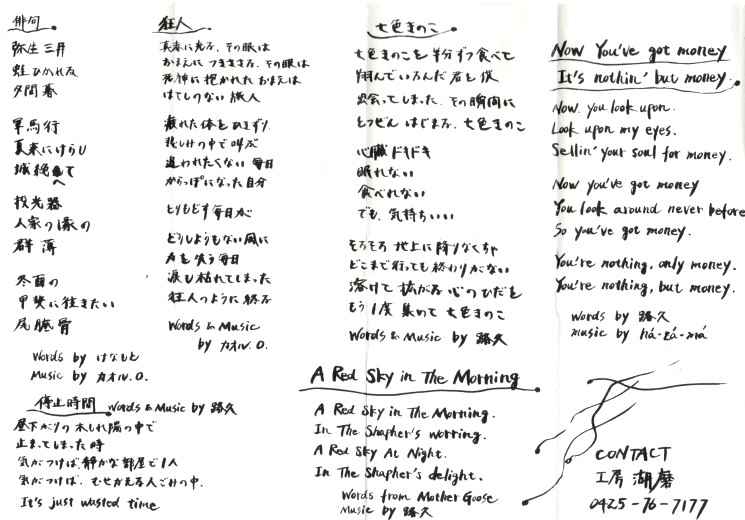 俳句
弥生三井
蛙ひかれる
夕間暮
軍馬行
夏来にけらし
城絶へて
投光器
人家の濠の
群薄
冬酉の
甲斐に往きたい
尾骶骨
Words by はなもと
Music by カオル.O.
狂人
真赤に光る、その眼は
おまえにつきささる、その眼は
死神に抱かれたおまえは
はてしのない旅人
疲れた体をひきずり
悲しみの中で叫ぶ
追われたくない毎日
からっぽになった自分
とりもどす毎日が
どうしようもない風に
声を失う毎日
涙も枯れてしまった
狂人のように終る
Words & Music
by カオル.O.
停止時間 Words & Music by 路久
昼下がりの木しれ陽の中で
止まってしまった時
気がつけば、静かな部屋で1人
気がつけば、むせかえる人ごみの中.
It's just wasted time
七色きのこ
七色きのこを半分ずつ食べて
翔んでいるんだ君と僕
出会ってしまった、その瞬間に
とつぜんはじまる、七色きのこ
心臓ドキドキ
眠れない
食べれない
でも、気持ちいい
そろそろ地上に降りなくちゃ
どこまで行っても終わりがない
溶けて拡がる心のひだを
もう1度集めて七色きのこ
Words & Music by 路久
A Red Sky in The Morning
A Red Sky in The Morning.
In The Shapher's worring.
A Red Sky At Night.
In The Shapher's delight.
Words from Mother Goose
Music by 路久
Now You've got money
It's nothin' but money.
Now. you look upon.
Look upon my eyes.
Sellin' your soul for money.
Now you've got money
You look around never before
So you've got money.
You're nothing, only money.
You're nothing, but money.
Words by 路久
music by há-zá-má
CONTACT
工房 湖磨
0425-76-7177